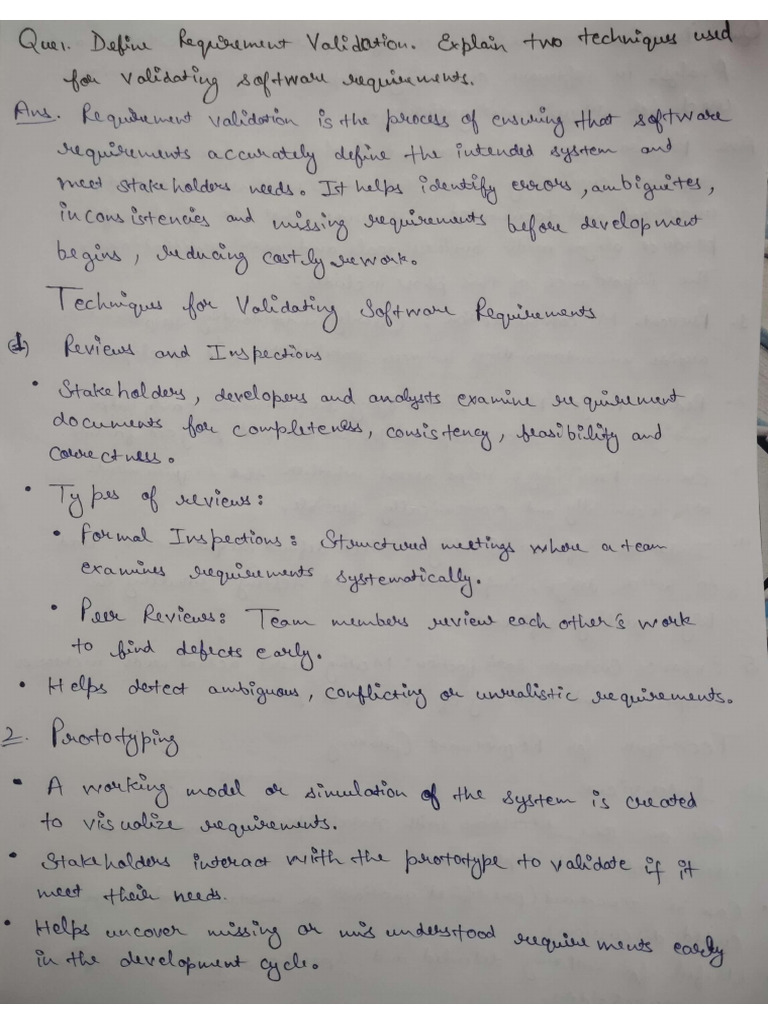 Que1. Define Requirement Validation. Explain two techniques used
for validating software requirements.
Ans. Requirement validation is the process of ensuring that software
requirements accurately define the intended system and
meet stakeholders needs. It helps identify errors, ambiguites,
inconsistencies and missing requirements before development
begins, reducing costly rework.
Techniques for Validating Software Requirements
1) Reviews and Inspections
• Stakeholders, developers and analysts examine requirement
documents for completeness, consistency, feasibility and
correctness.
• Types of reviews:
• Formal Inspections: Structured meetings where a team
examines requirements systematically.
• Peer Reviews: Team members review each other's work
to find defects early.
• Helps detect ambiguous, conflicting or unrealistic requirements.
2. Prototyping
• A working model or simulation of the system is created
to visualize requirements.
• Stakeholders interact with the prototype to validate if it
meet their needs.
• Helps uncover missing or misunderstood requirements early
in the development cycle.